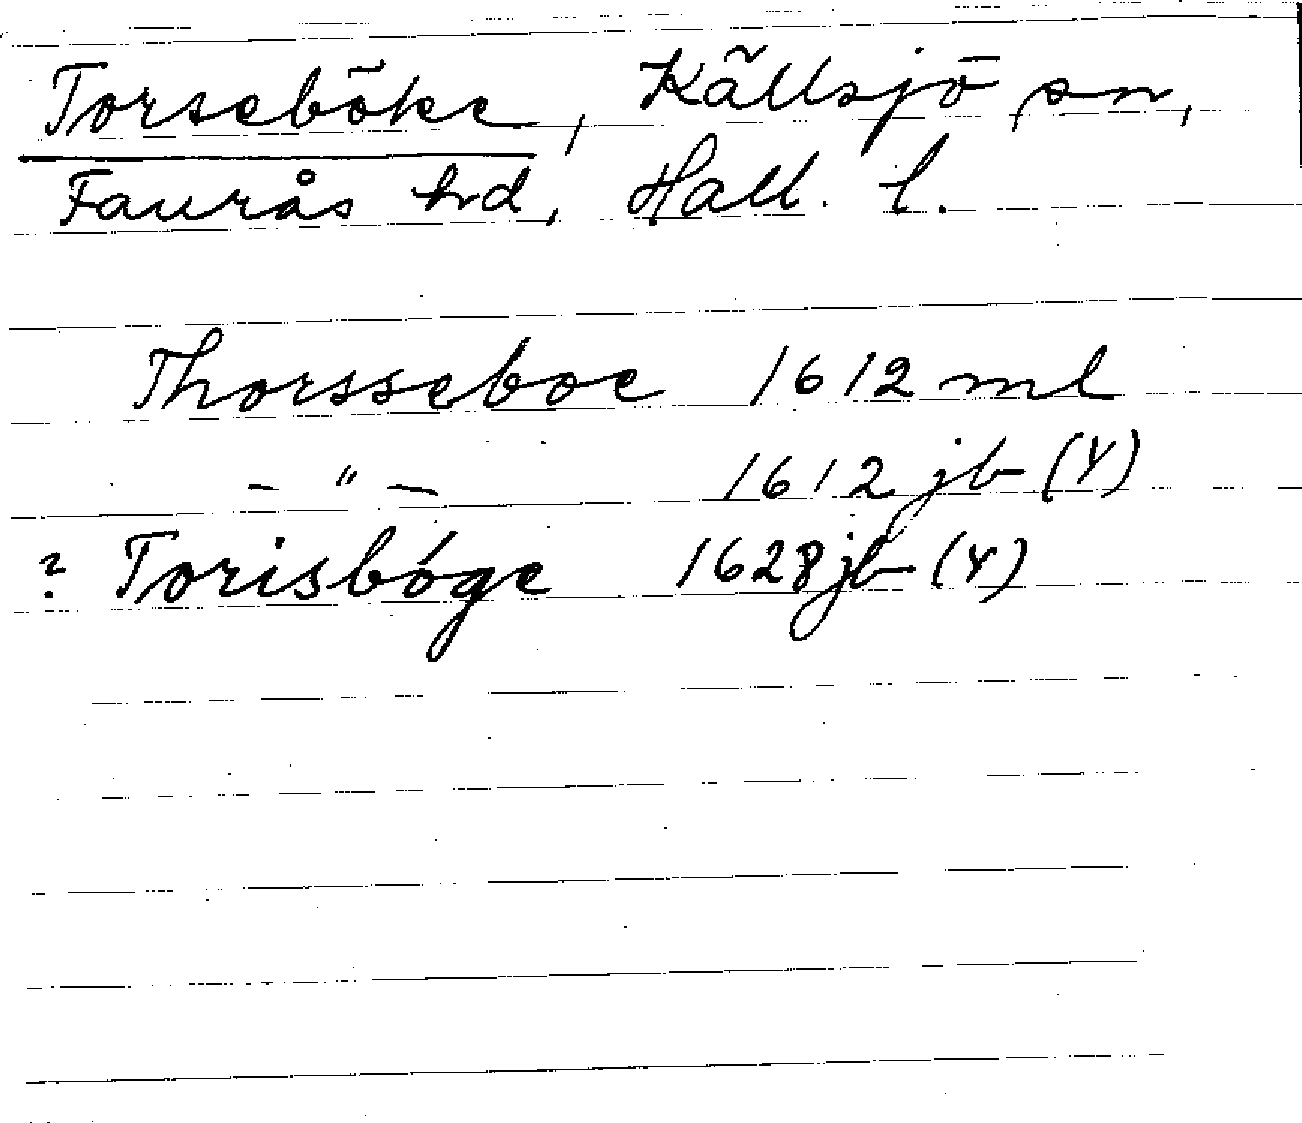 Torseböke, Källsjö sn,
Faurås hrd, Hall. l.
Thorsseboe 1612 ml
— " — 1612 jb (Y)
? Torisbóge 1628 jb (Y)